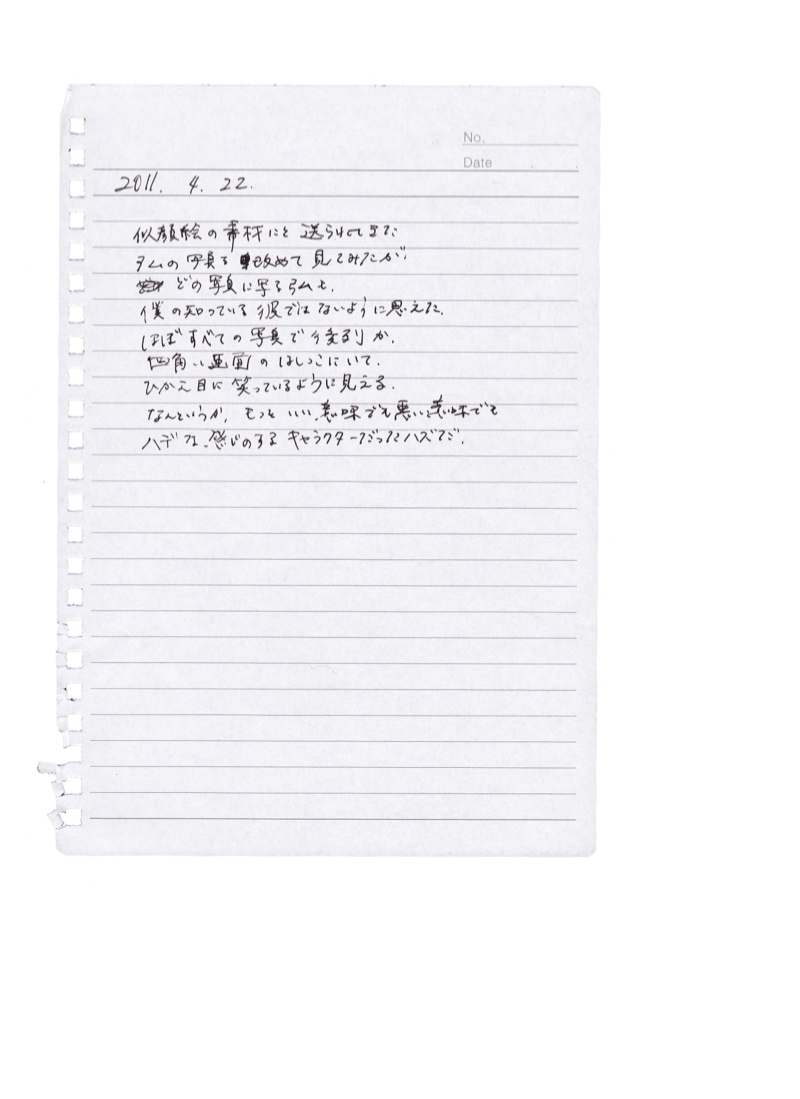 No.
Date
2011. 4. 22.
似顔絵の素材にと送られてきた
タムの写真を改めて見てみたが、
どの写真に写るタムも、
僕の知っている彼ではないように思えた。
ほぼすべての写真で後列か、
四角い画面のはしっこにいて、
ひかえ目に笑っているように見える。
なんというか、もっといい意味でも悪い意味でも
ハデな感じのするキャラクターだったハズだ。